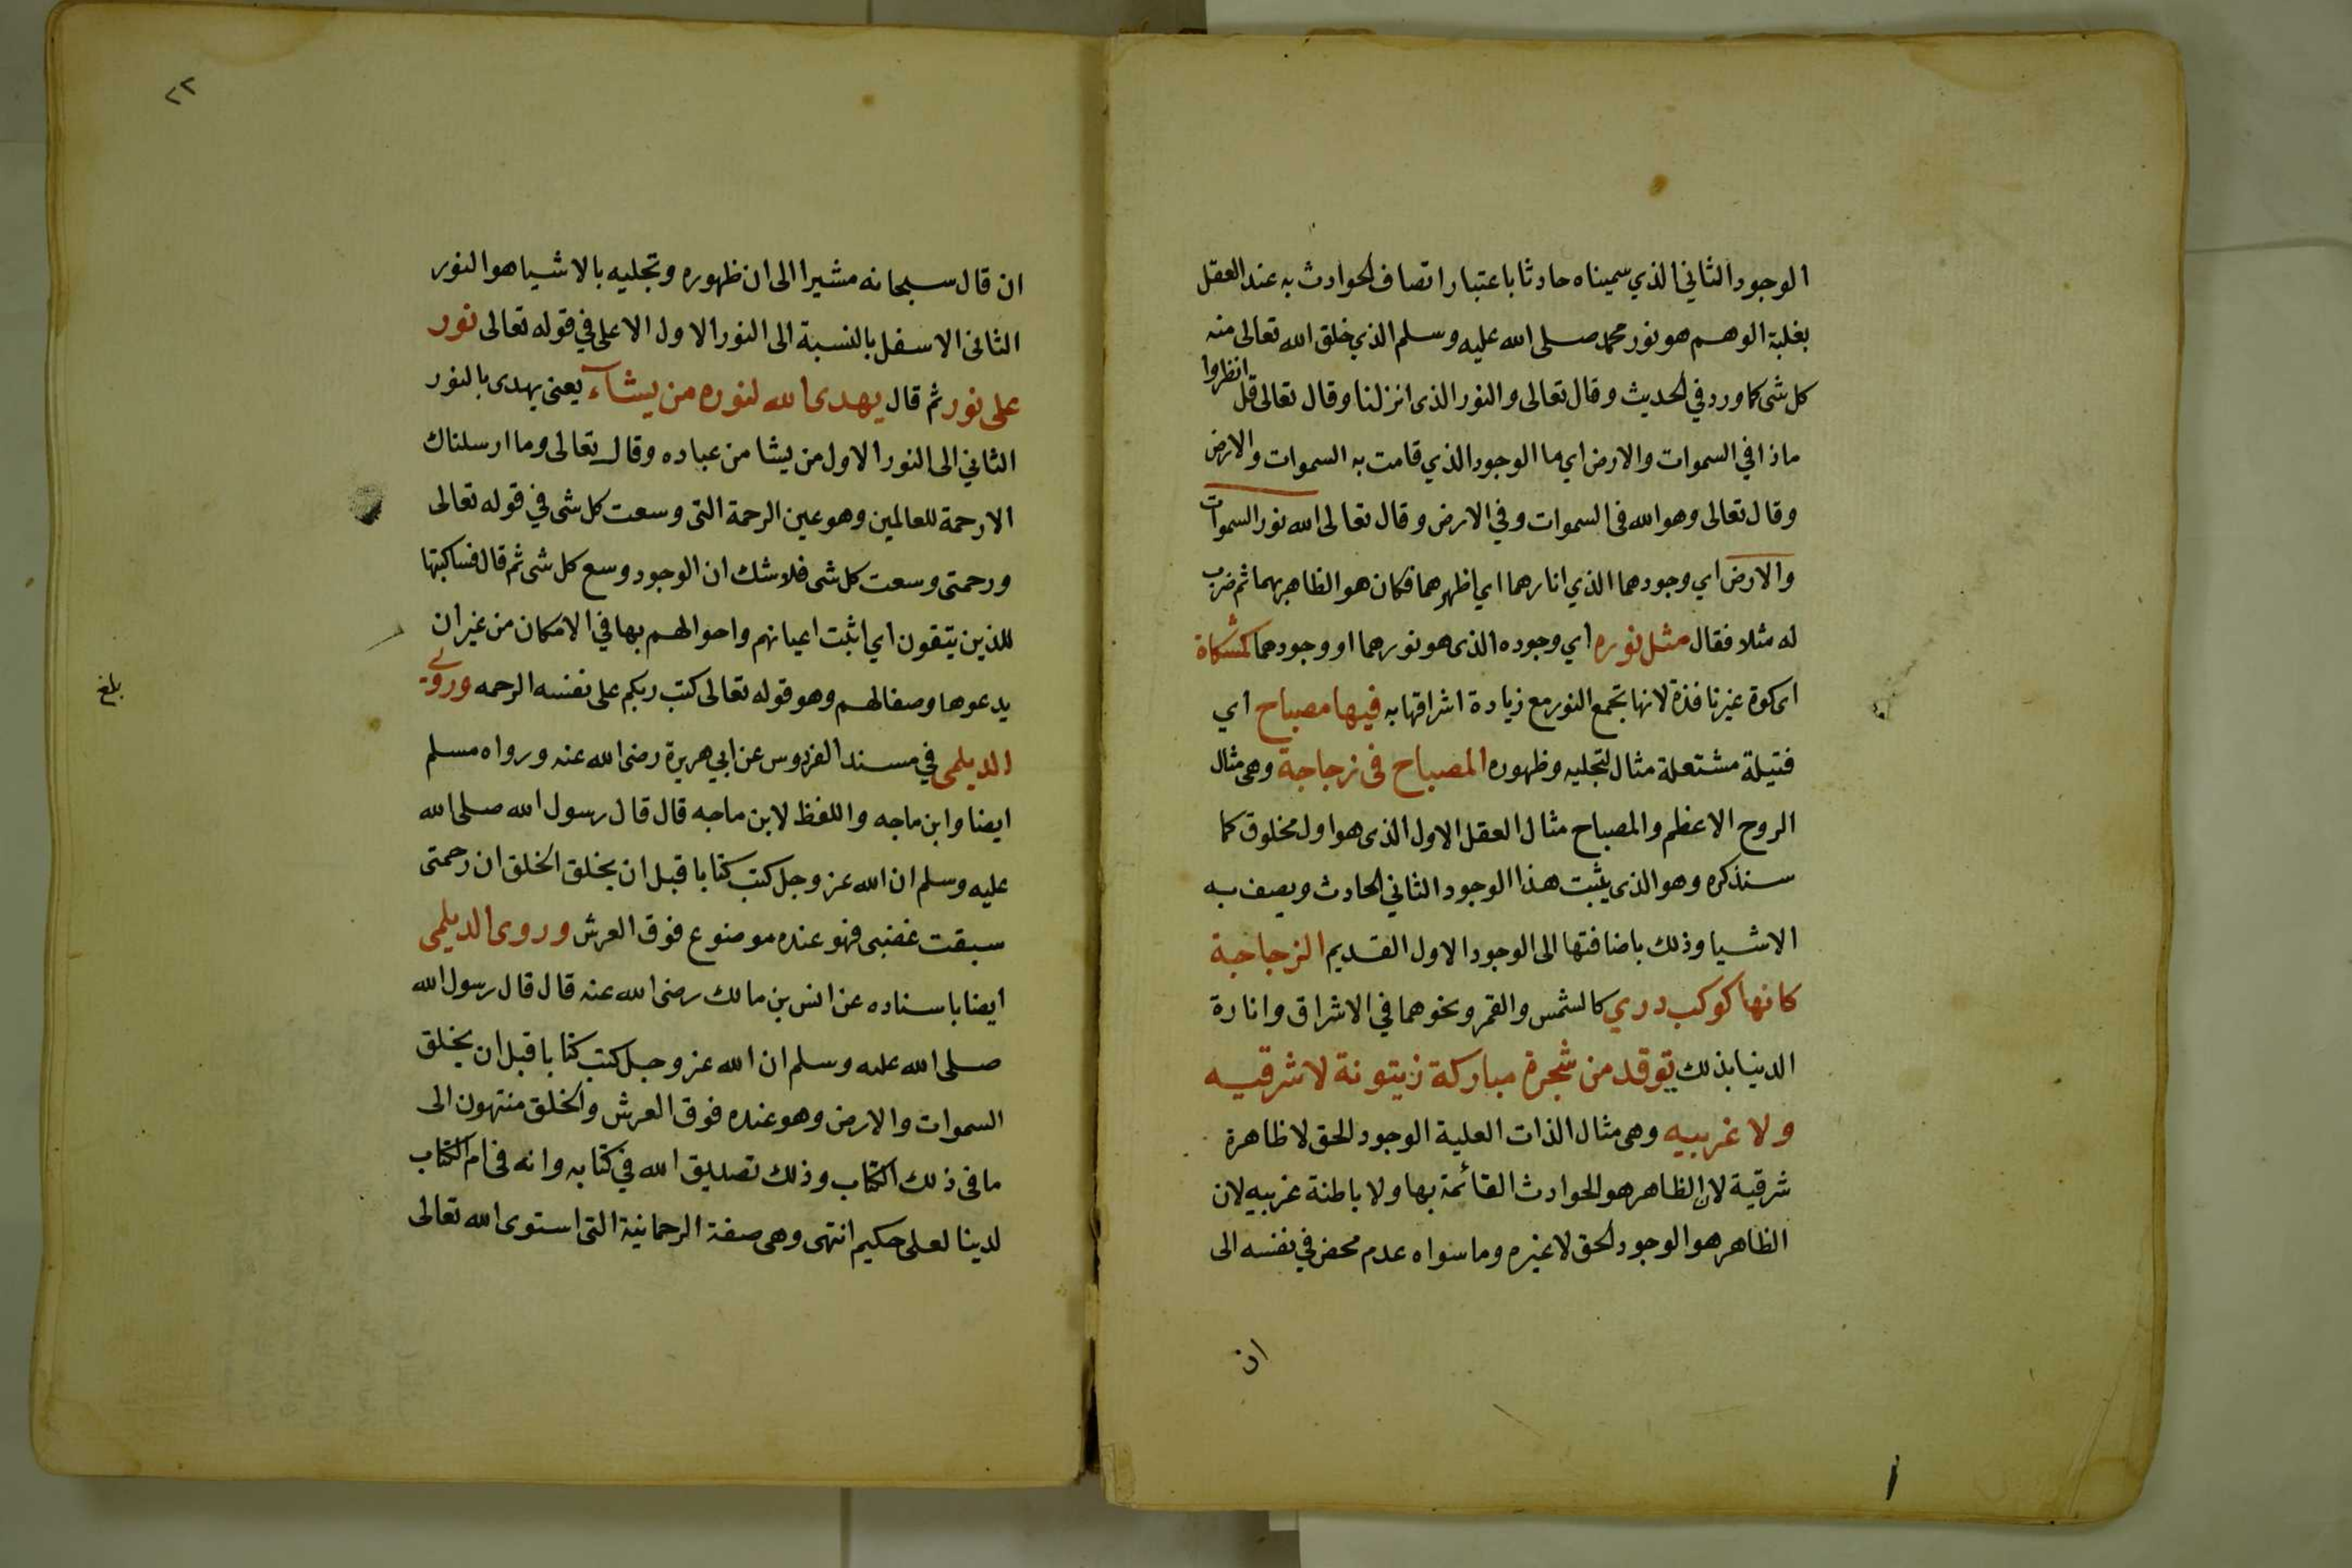 الوجود الثاني الذي سميناه حادثا باعتبار اتصاف الحوادث به عند العقل
بغلبة الوهم هو نور محمد صلى الله عليه وسلم الذي خلق الله تعالى منه
كل شى كما ورد في الحديث وقال تعالى والنور الذى انزلنا وقال تعالى قل انظروا
ماذا في السموات والارض اي ما الوجود الذي قامت به السموات والارض
وقال تعالى وهو الله فى السموات وفي الارض وقال تعالى الله نور السموات
والارض اي وجودهما الذي انارهما اي اظهرهما فكان هو الظاهر بهما ثم ضرب
له مثلا فقال مثل نوره اي وجوده الذى هو نورهما او وجودهما كمشكاة
اى كوة غير نافذة لانها تجمع النور مع زيادة اشراقها به فيها مصباح اي
فتيلة مشتعلة مثال لتجليه وظهوره المصباح فى زجاجة وهى مثال
الروح الاعظم والمصباح مثال العقل الاول الذى هو اول مخلوق كما
سنذكره وهو الذى يثبت هذا الوجود الثاني الحادث ويصف به
الاشيا وذلك باضافتها الى الوجود الاول القديم الزجاجة
كانها كوكب دري كالشمس والقمر ونحوهما في الاشراق وانارة
الدنيا بذلك توقد من شجرة مباركة زيتونة لا شرقيه
ولا غربيه وهى مثال الذات العلية الوجود الحق لا ظاهرة
شرقية لان الظاهر هو الحوادث القائمة بها ولا باطنة غربيه لان
الظاهر هو الوجود الحق لا غيره وما سواه عدم محض في نفسه الى
ان
٢٢
ان قال سبحانه مشيرا الى ان ظهوره وتجليه بالاشيا هو النور
الثانى الاسفل بالنسبة الى النور الاول الاعلى في قوله تعالى نور
على نور ثم قال يهدى الله لنوره من يشآء يعنى يهدى بالنور
الثاني الى النور الاول من يشا من عباده وقال تعالى وما ارسلناك
الا رحمة للعالمين وهو عين الرحمة التى وسعت كل شى في قوله تعالى
ورحمتى وسعت كل شى فلا شك ان الوجود وسع كل شى ثم قال فساكتبها
للذين يتقون اي اثبت اعيانهم واحوالهم بها في الامكان من غير ان
يدعوها وصفا لهم وهو قوله تعالى كتب ربكم على نفسه الرحمه وروى
بلغ
الديلمى في مسند الفردوس عن ابي هريرة رضى الله عنه ورواه مسلم
ايضا وابن ماجه واللفظ لابن ماجه قال قال رسول الله صلى الله
عليه وسلم ان الله عز وجل كتب كتابا قبل ان يخلق الخلق ان رحمتى
سبقت غضبى فهو عنده موضوع فوق العرش وروى الديلمى
ايضا باسناده عن انس بن مالك رضى الله عنه قال قال رسول الله
صلى الله عليه وسلم ان الله عز وجل كتب كتابا قبل ان يخلق
السموات والارض وهو عنده فوق العرش والخلق منتهون الى
ما فى ذلك الكتاب وذلك تصديق الله في كتابه وانه فى ام الكتاب
لدينا لعلى حكيم انتهى وهى صفة الرحمانية التى استوى الله تعالى